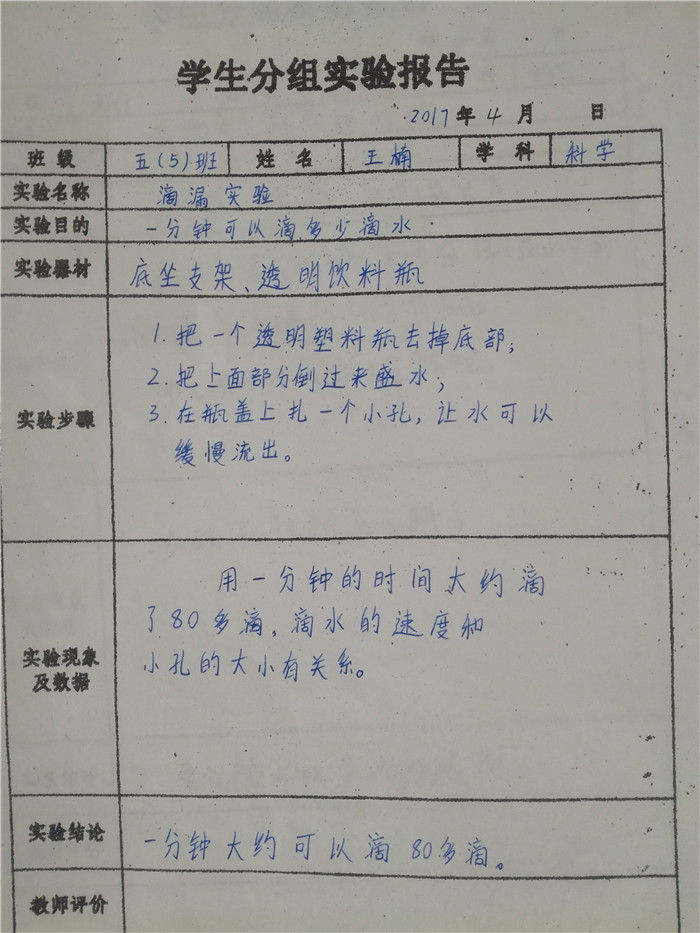 学生分组实验报告
2017年4月 日
班级 五(5)班 姓名 王楠 学科 科学
实验名称 滴漏实验
实验目的 一分钟可以滴多少滴水
实验器材 底坐支架、透明饮料瓶
实验步骤
1.把一个透明塑料瓶去掉底部;
2.把上面部分倒过来盛水;
3.在瓶盖上扎一个小孔,让水可以
缓慢流出。
实验现象
及数据
用一分钟的时间大约滴
了80多滴,滴水的速度和
小孔的大小有关系。
实验结论 一分钟大约可以滴80多滴。
教师评价